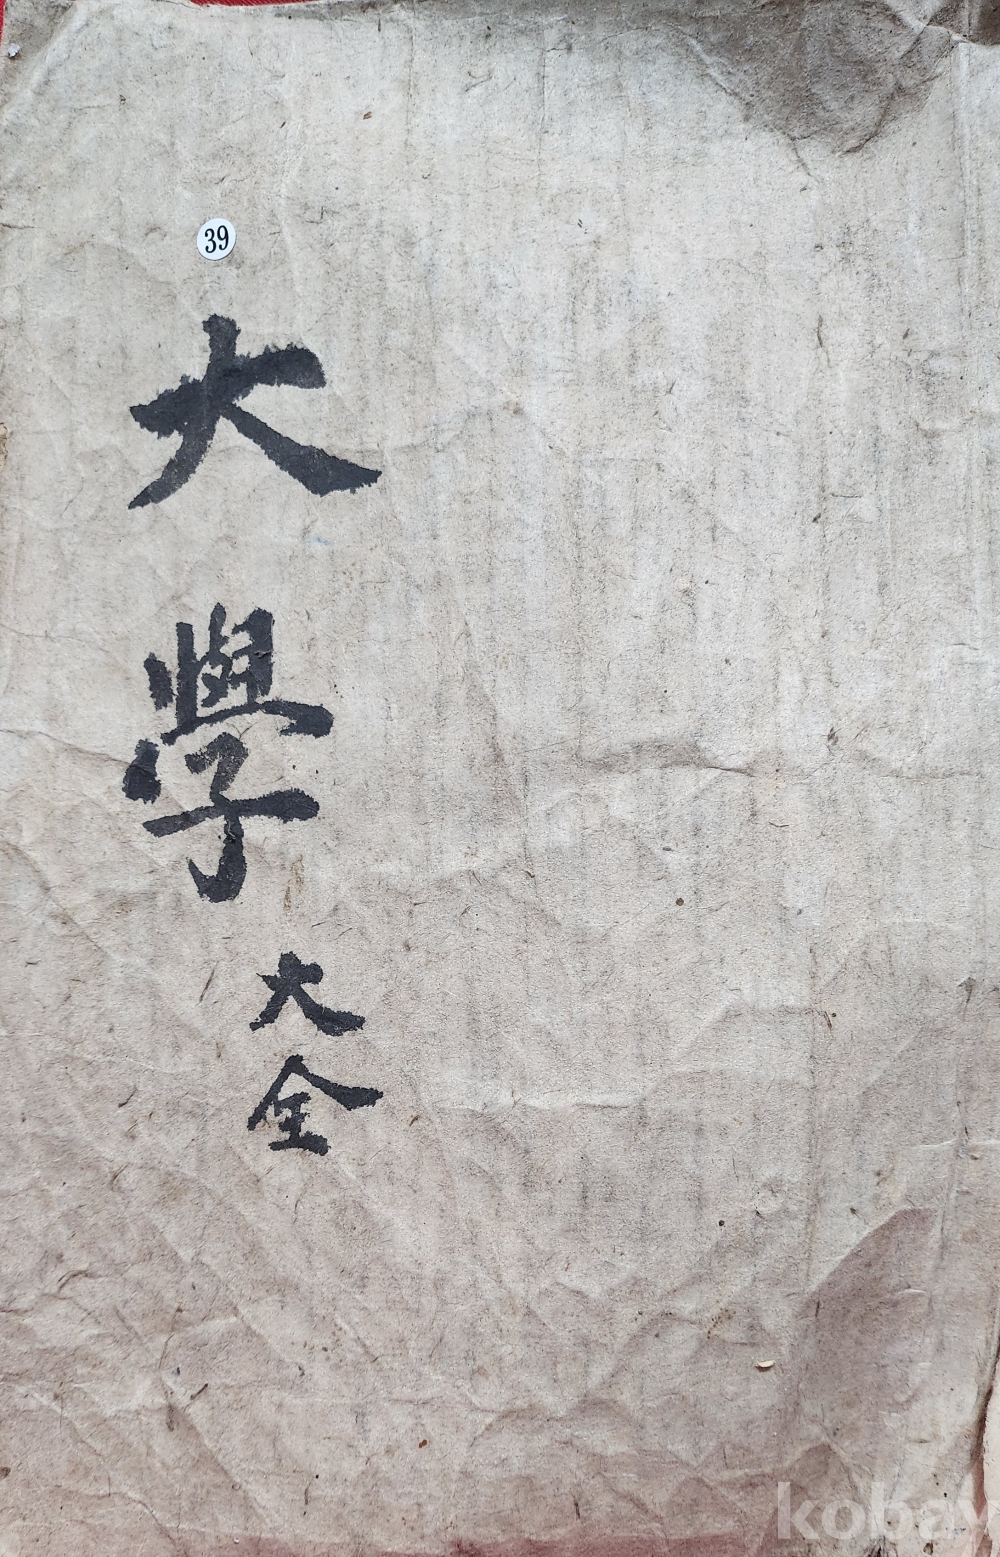 39
大學
大全
kobay